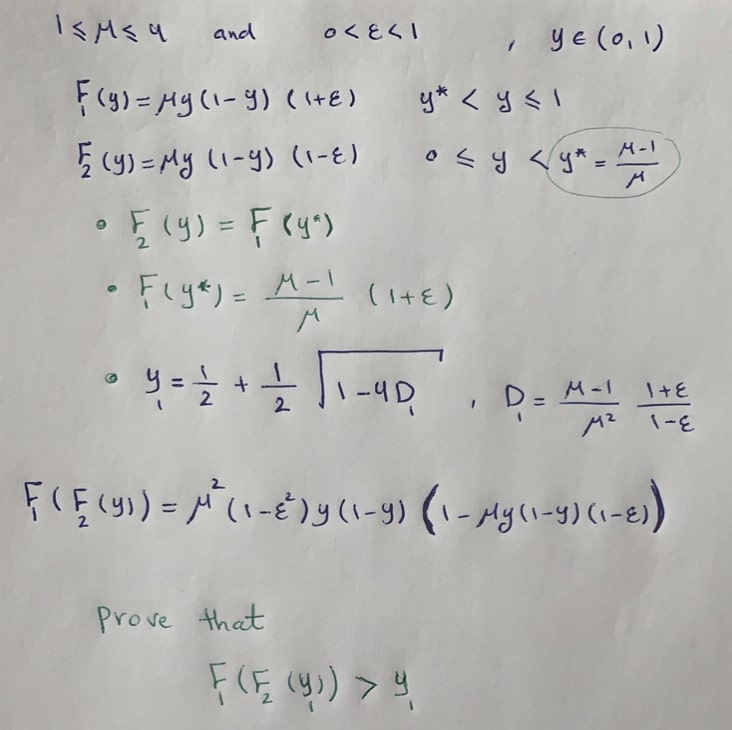 1 ≤ μ ≤ 4 and 0 < ε < 1 , y ∈ (0, 1)
F₁(y) = μy(1-y) (1+ε) y* < y ≤ 1
F₂(y) = μy (1-y) (1-ε) 0 ≤ y < y* = (μ-1)/μ
• F₂(y) = F₁(y*)
• F₁(y*) = (μ-1)/μ (1+ε)
• y₁ = 1/2 + 1/2 √(1-4D₁) , D₁ = (μ-1)/μ² (1+ε)/(1-ε)
F₁(F₂(y)) = μ²(1-ε²)y(1-y) (1-μy(1-y)(1-ε))
prove that
F₁(F₂(y₁)) > y₁